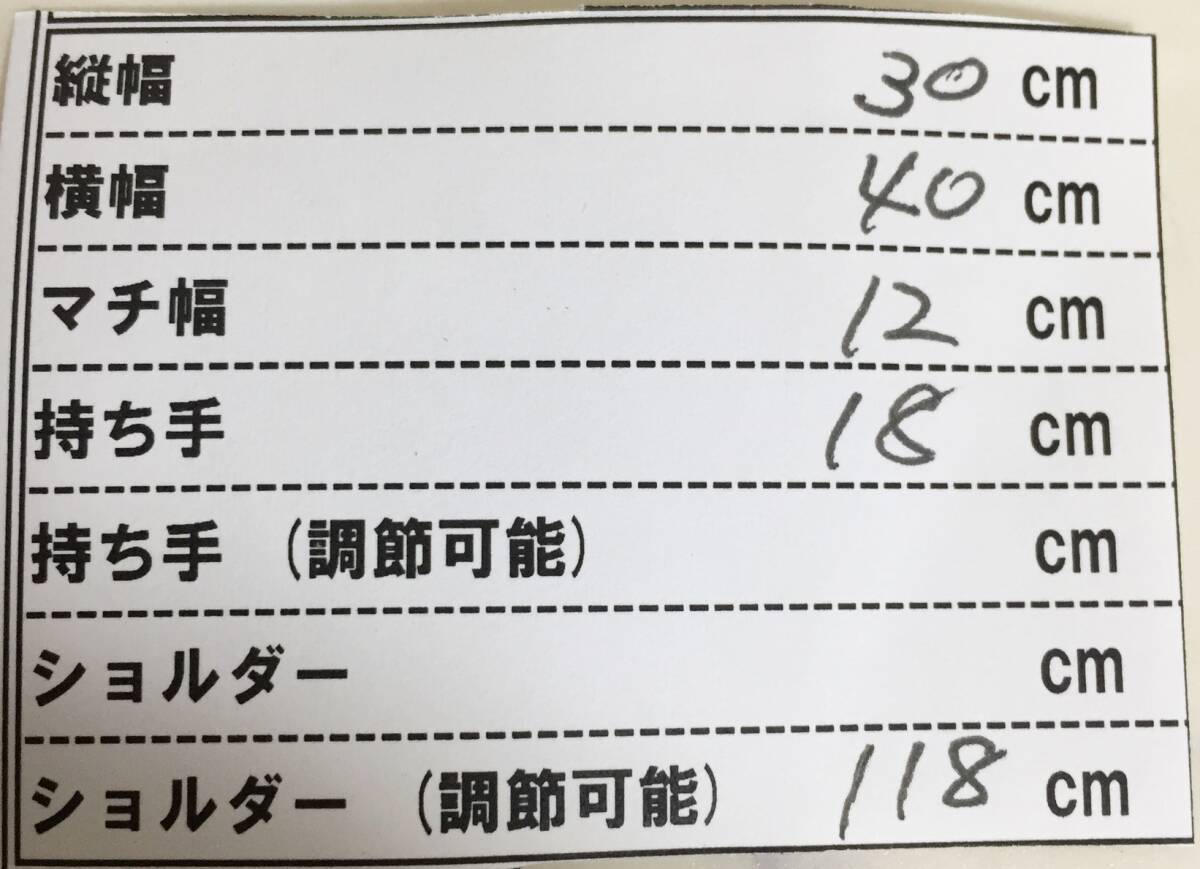 縦幅 30 cm
横幅 40 cm
マチ幅 12 cm
持ち手 18 cm
持ち手 (調節可能) cm
ショルダー cm
ショルダー (調節可能) 118 cm